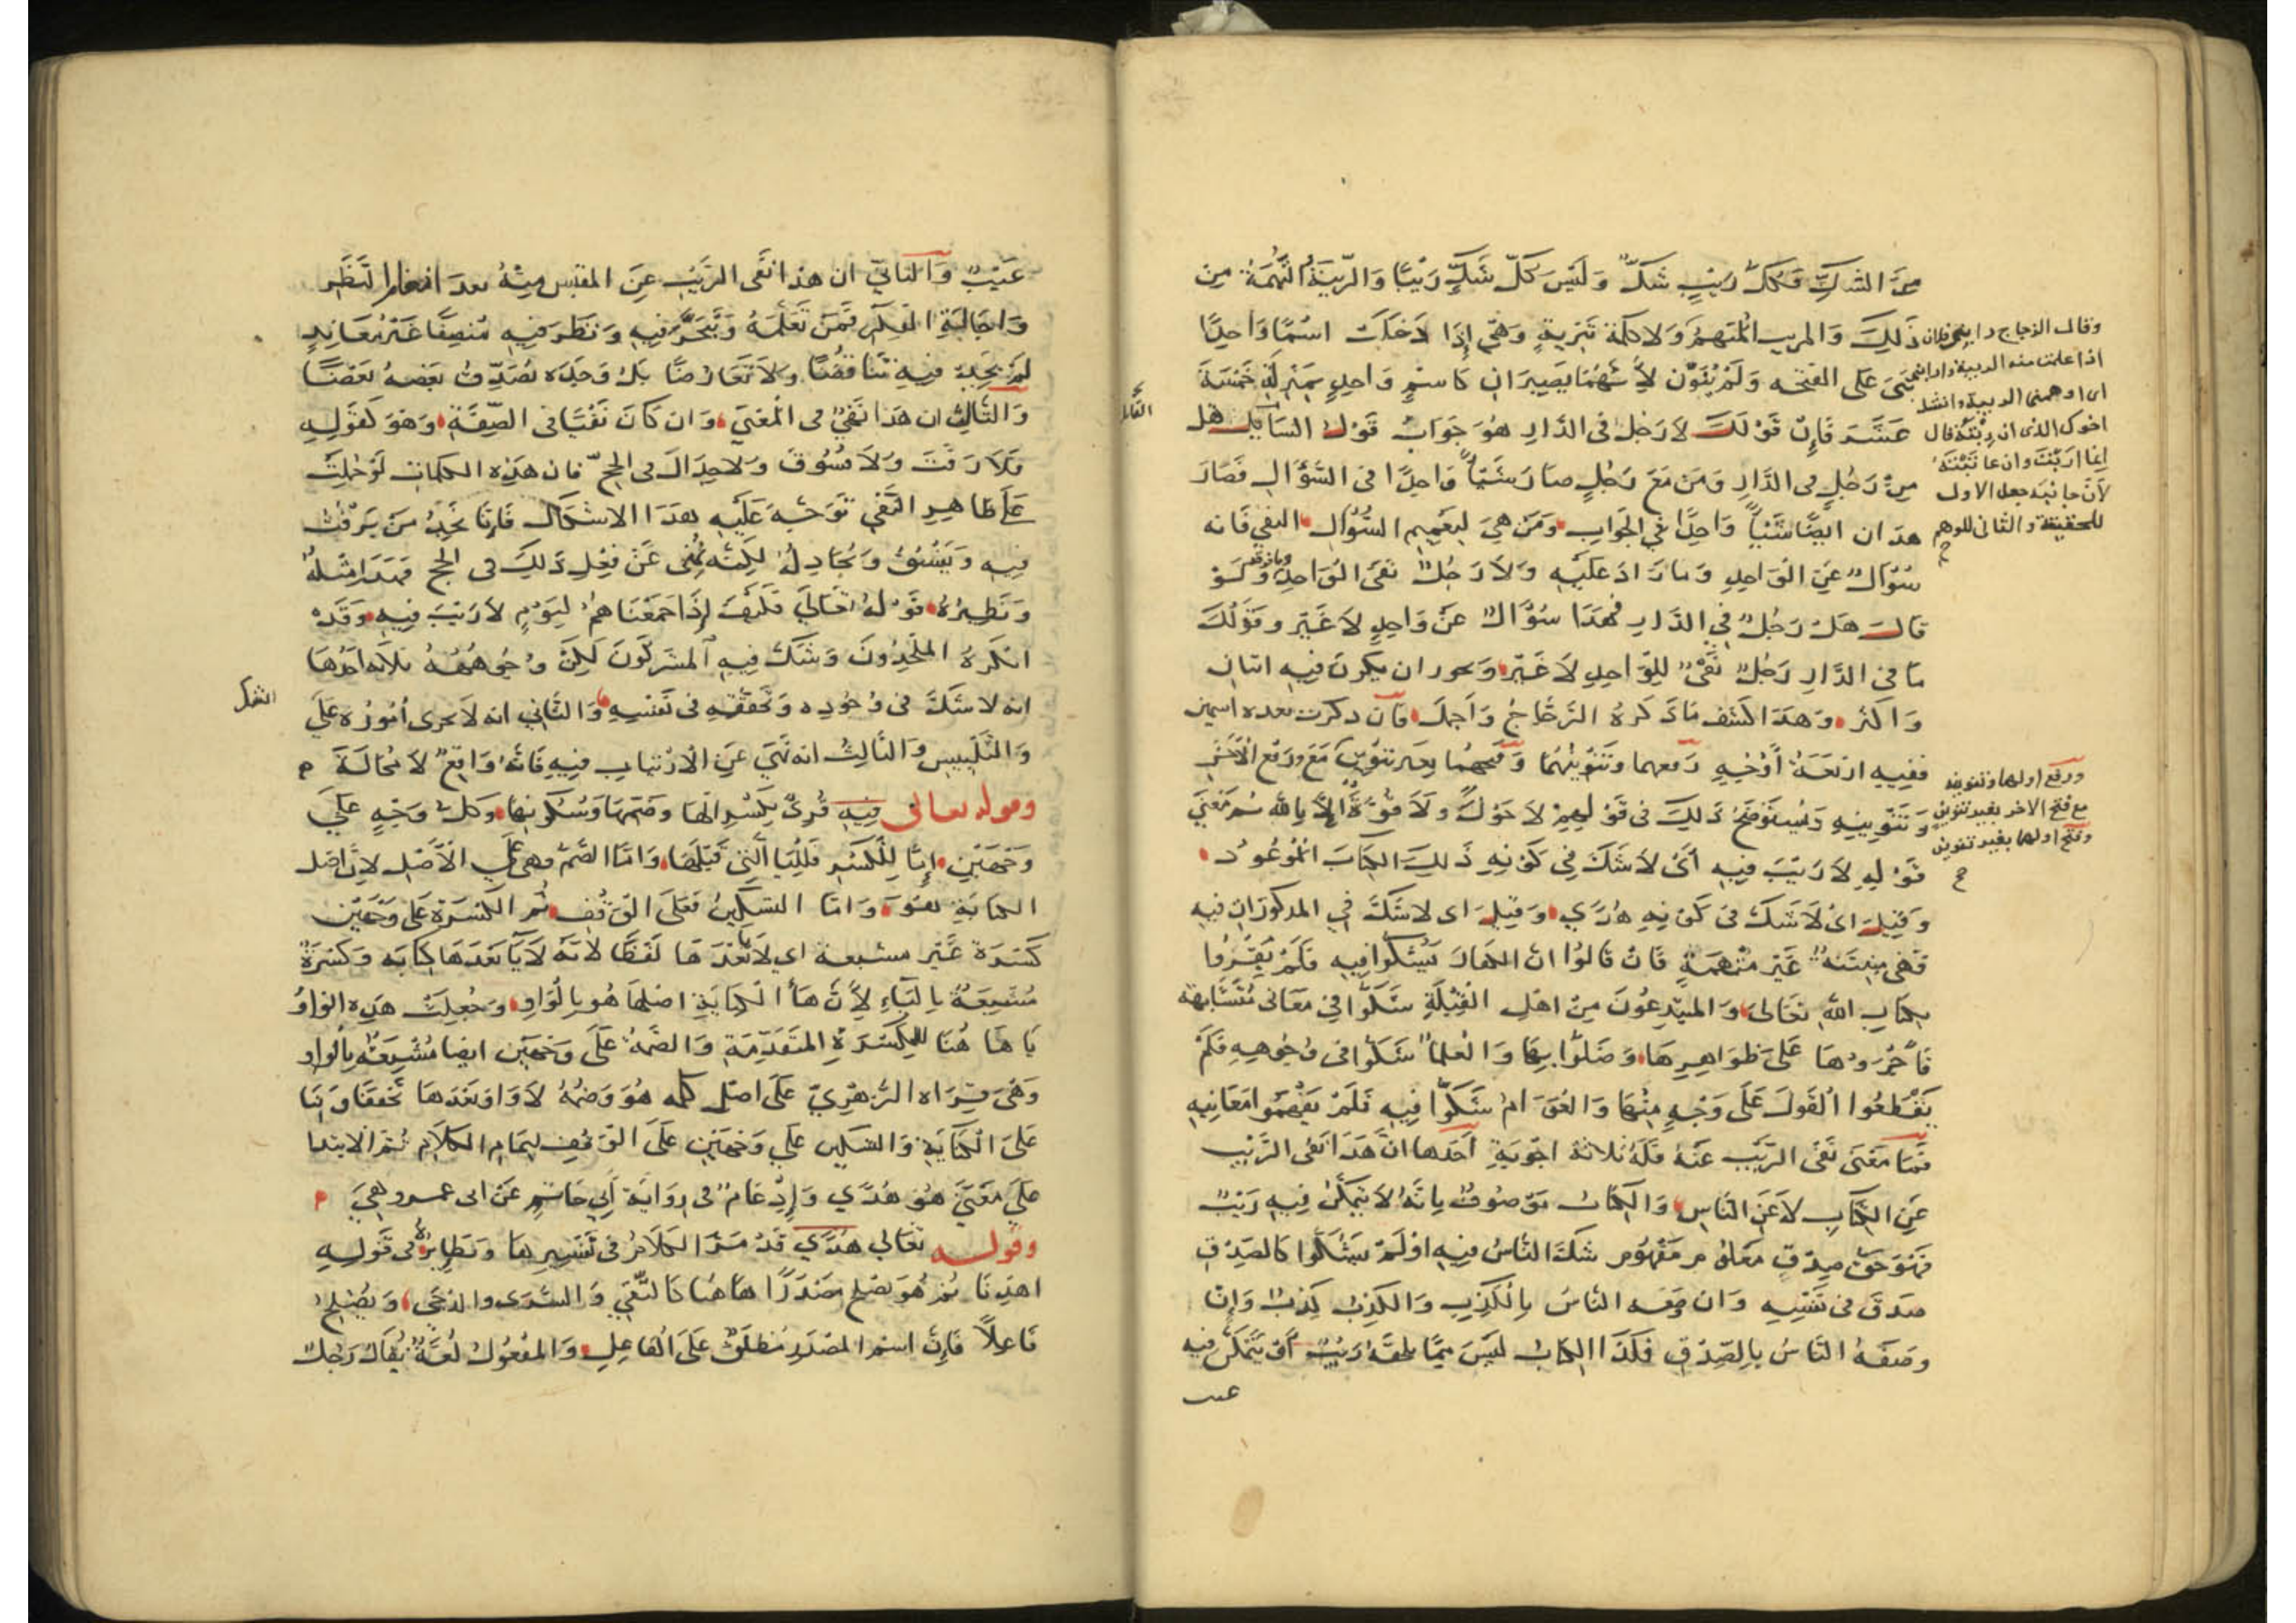 من الشك فكل ريب شك وليس كل شك ريبا والريبة التهمة من
ذلك والمريب المتهم ولا كلمة تبرية وهي إذا دخلت اسما واحدا
بني على الفتحه ولم ينون لأنهما يصيران كاسم واحد بمنزلة خمسة
عشر فإن قولك لا رجل في الدار هو جواب قول السايل هل
من رجل في الدار ومن مع رجل صار شيئا واحدا في السؤال فصار
هذان ايضا شيئا واحدا في الجواب ومن هي لتعميم السؤال النفي فانه
سؤال عن الواحد وما زاد عليه ولا رجل نفى الواحد وما فوقه ولو
قال هل رجل في الدار فهذا سؤال عن واحد لا غير وقولك
ما في الدار رجل نفي للواحد لا غير ويجوز ان يكون فيه اثنان
واكثر وهذا اكشف ما ذكره الزجاج واجمل فان ذكرت بعده اسمين
ففيه اربعة أوجه رفعهما وتنوينهما وفتحهما بغير تنوين مع ورفع الآخر
وتنوينه وسنوضح ذلك في قولهم لا حول ولا قوة إلا بالله ثم معنى
قوله لا ريب فيه أى لا شك في كونه ذلك الكتاب الموعود
وقيل اى لا شك في كونه هدى وقيل اى لا شك في المذكور ان فيه
فهي مبينة غير متهمة فان قالوا ان الكفار شكوا فيه فلم يقروا
بكتاب الله تعالى والمبتدعون من اهل القبلة شكوا في معانى متشابهه
فأجروها على ظواهرها وضلوا بها والعلما شكوا في وجوهه فلم
يقطعوا القول على وجه منها والعوام شكوا فيه فلم يفهموا معانيه
فما معنى نفى الريب عنه فله ثلاثة اجوبة أحدها ان هذا نفى الريب
عن الكتاب لا عن الناس والكتاب موصوف بانه لا يتمكن فيه ريب
فهو حق صدق معلوم مفهوم شك الناس فيه او لم يشكوا كالصدق
صدق في نفسه وان وصفه الناس بالكذب والكذب كذب وإن
وصفه الناس بالصدق فكذا الكتاب ليس مما يلحقه ريب أو يتمكن فيه
عيب
وقال الزجاج رابني فلان
اذا علمت منه الريبة وارابني
اى اوهمني الريبة وانشد
اخوك الذى ان ربته قال
إنما اربت وان عاتبته
لان جانبه جعل الاول
للحقيقة والثانى للوهم
ورفع اولهما وتنوينه
مع فتح الآخر بغير تنوين
وفتح اولهما بغير تنوين
عيب والثاني ان هذا نفى الريب عن المقتبس منه بعد انعام النظر
واجالة الفكر فمن تعلمه وتبحر فيه ونظر فيه منصفا غير معاند
لم يجد فيه تناقضا ولا تعارضا بل وحده يصدق بعضه بعضا
والثالث ان هذا نفي في المعنى وان كان نفيا في الصفة وهو كقوله
فلا رفث ولا فسوق ولا جدال في الحج فان هذه الكلمات لو حملت
على ظاهر النفي توجه عليه هذا الاشكال فإنا نجد من يرفث
فيه ويفسق ويجادل لكنه نهى عن فعل ذلك في الحج فهذا مثله
ونظيره قوله تعالى فكيف إذا جمعناهم ليوم لا ريب فيه وقد
انكره الملحدون وشك فيه المشركون لكن وجوهه ثلاثه احدها
انه لا شك في وجوده وتحققه في نفسه والثاني انه لا تجرى أموره على
والتلبيس والثالث انه نهي عن الارتياب فيه فانه واقع لا محالة
وقوله تعالى فيه قرئ بكسر الها وضمها وسكونها وكل وجه على
وجهين إما للكسر فلليا التي قبلها واما الضم فهى على الأصل لان اصل
الكناية هو واما التسكين فعلى الوقف ثم الكسرة على وجهين
كسرة غير مشبعة اى لا يا بعدها لفظا لانه لا يا بعدها كتابه وكسرة
مشبعة بالياء لأن ها الكناية اصلها هو بالواو وجعلت هذه الواو
يا ها هنا للكسرة المتقدمة والضمة على وجهين ايضا مشبعة بالواو
وهي قراه الزهري على اصل كلمه هو وضمة لا واو بعدها تخفيفا وبنا
على الكناية والتسكين على وجهين على الوقف لتمام الكلام ثم الابتدا
على معنى هو هدى وإدغام في رواية أبي حاتم عن ابى عمرو وهي
وقوله تعالى هدى قد مر الكلام في تفسيرها ونظايره في قوله
اهدنا ثم هو يصلح مصدرا ها هنا كالتقى والسرى والدجى ويصلح
فاعلا فإن اسم المصدر منطلق على الفاعل والمفعول لغة يقال رجل